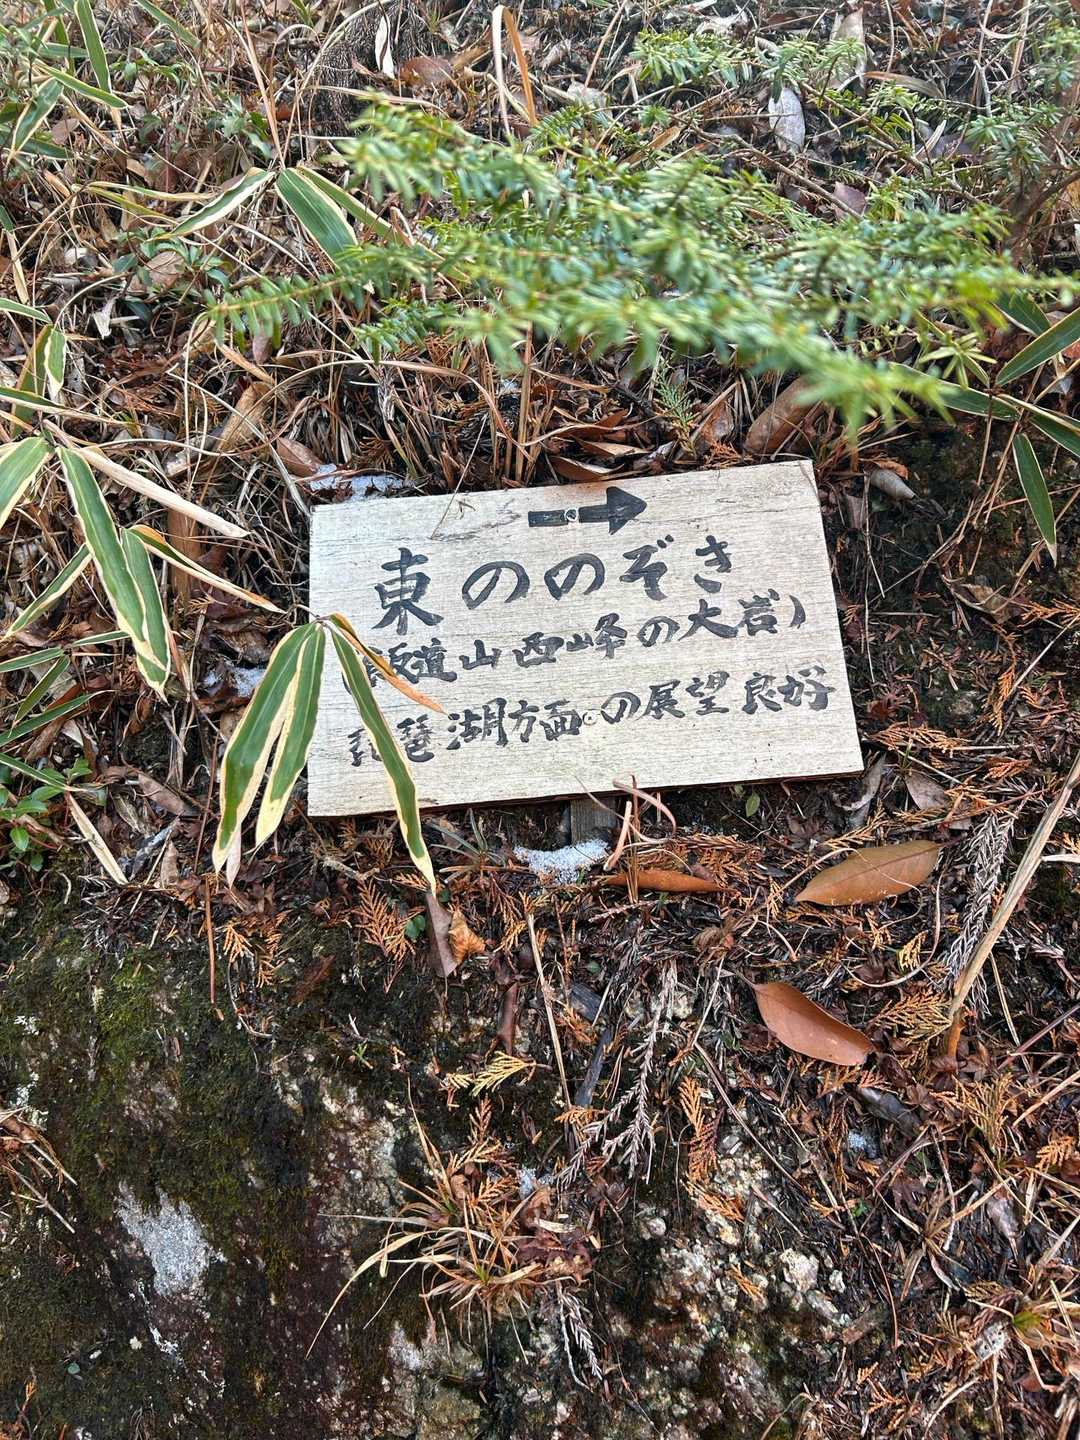 →
東ののぞき
(飯道山西峰の大岩)
琵琶湖方面の展望良好